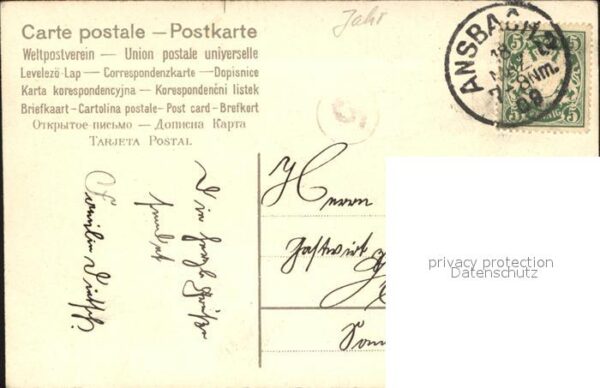 Carte postale — Postkarte
Weltpostverein — Union postale universelle
Levelező Lap — Correspondenzkarte — Dopisnice
Karta korespondencyjna — Korespondenčni listek
Briefkaart - Cartolina postale - Post card - Brefkort
Открытое письмо — Дописна Карта
TARJETA POSTAL
Jahr
ANSBACH
09
5 5
5 5
Die herzl. Grüße
sendet
Familie
Herrn
Gastwirt
privacy protection
Datenschutz